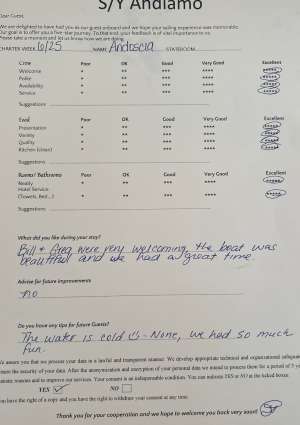 S/Y Andiamo
Dear Guest,
We are delighted to have had you as our guest onboard and we hope your sailing experience was memorable.
Our goal is to offer you a five-star journey. To that end, your feedback is of vital importance to us.
Please take a moment and let us know how we are doing.
CHARTER WEEK 6/25 NAME Andoscia STATEROOM
Crew Poor OK Good Very Good Excellent
Welcome * ** *** **** *****
Polite * ** *** **** *****
Availability * ** *** **** *****
Service * ** *** **** *****
Suggestions
Food Poor OK Good Very Good Excellent
Presentation * ** *** **** *****
Variety * ** *** **** *****
Quality * ** *** **** *****
Kitchen Island * ** *** **** *****
Suggestions
Rooms/ Bathrooms Poor OK Good Very Good Excellent
Neatly * ** *** **** *****
Hotel Service
(Towels, Bed...) * ** *** **** *****
Suggestions
What did you like during your stay?
Bill & Greg were very welcoming, the boat was
beautiful and we had a great time.
Advise for future improvements
no
Do you have any tips for future Guests?
The water is cold - None, we had so much
fun.
We assure you that we process your data in a lawful and transparent manner. We develop appropriate technical and organizational
ensure the security of your data. After the anonymization and encryption of your personal data we intend to process them for a period of 5
reasons and to improve our services. Your consent is an indispensable condition. You can indicate YES or NO at the ticked boxes.
YES NO
You have the right of a copy and you have the right to withdraw your consent at any time.
Thank you for your cooperation and we hope to welcome you back very soon!